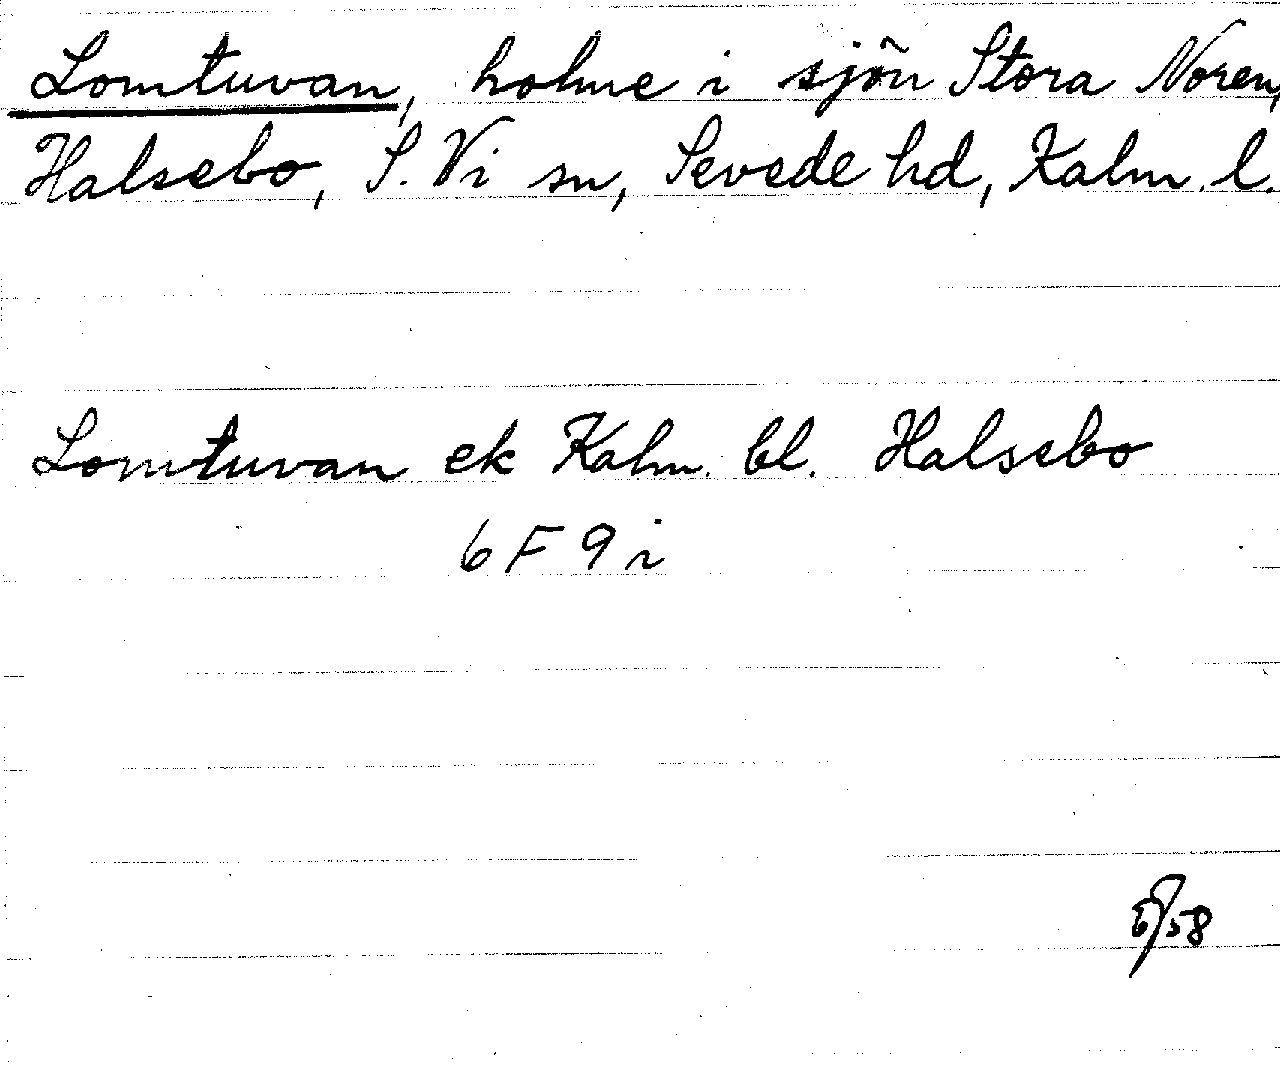 Lomtuvan, holme i sjön Stora Noren,
Halsebo, S. Vi sn, Sevede hd, Kalm. l.
Lomtuvan ek Kalm. bl. Halsebo
6 F 9 i
/58